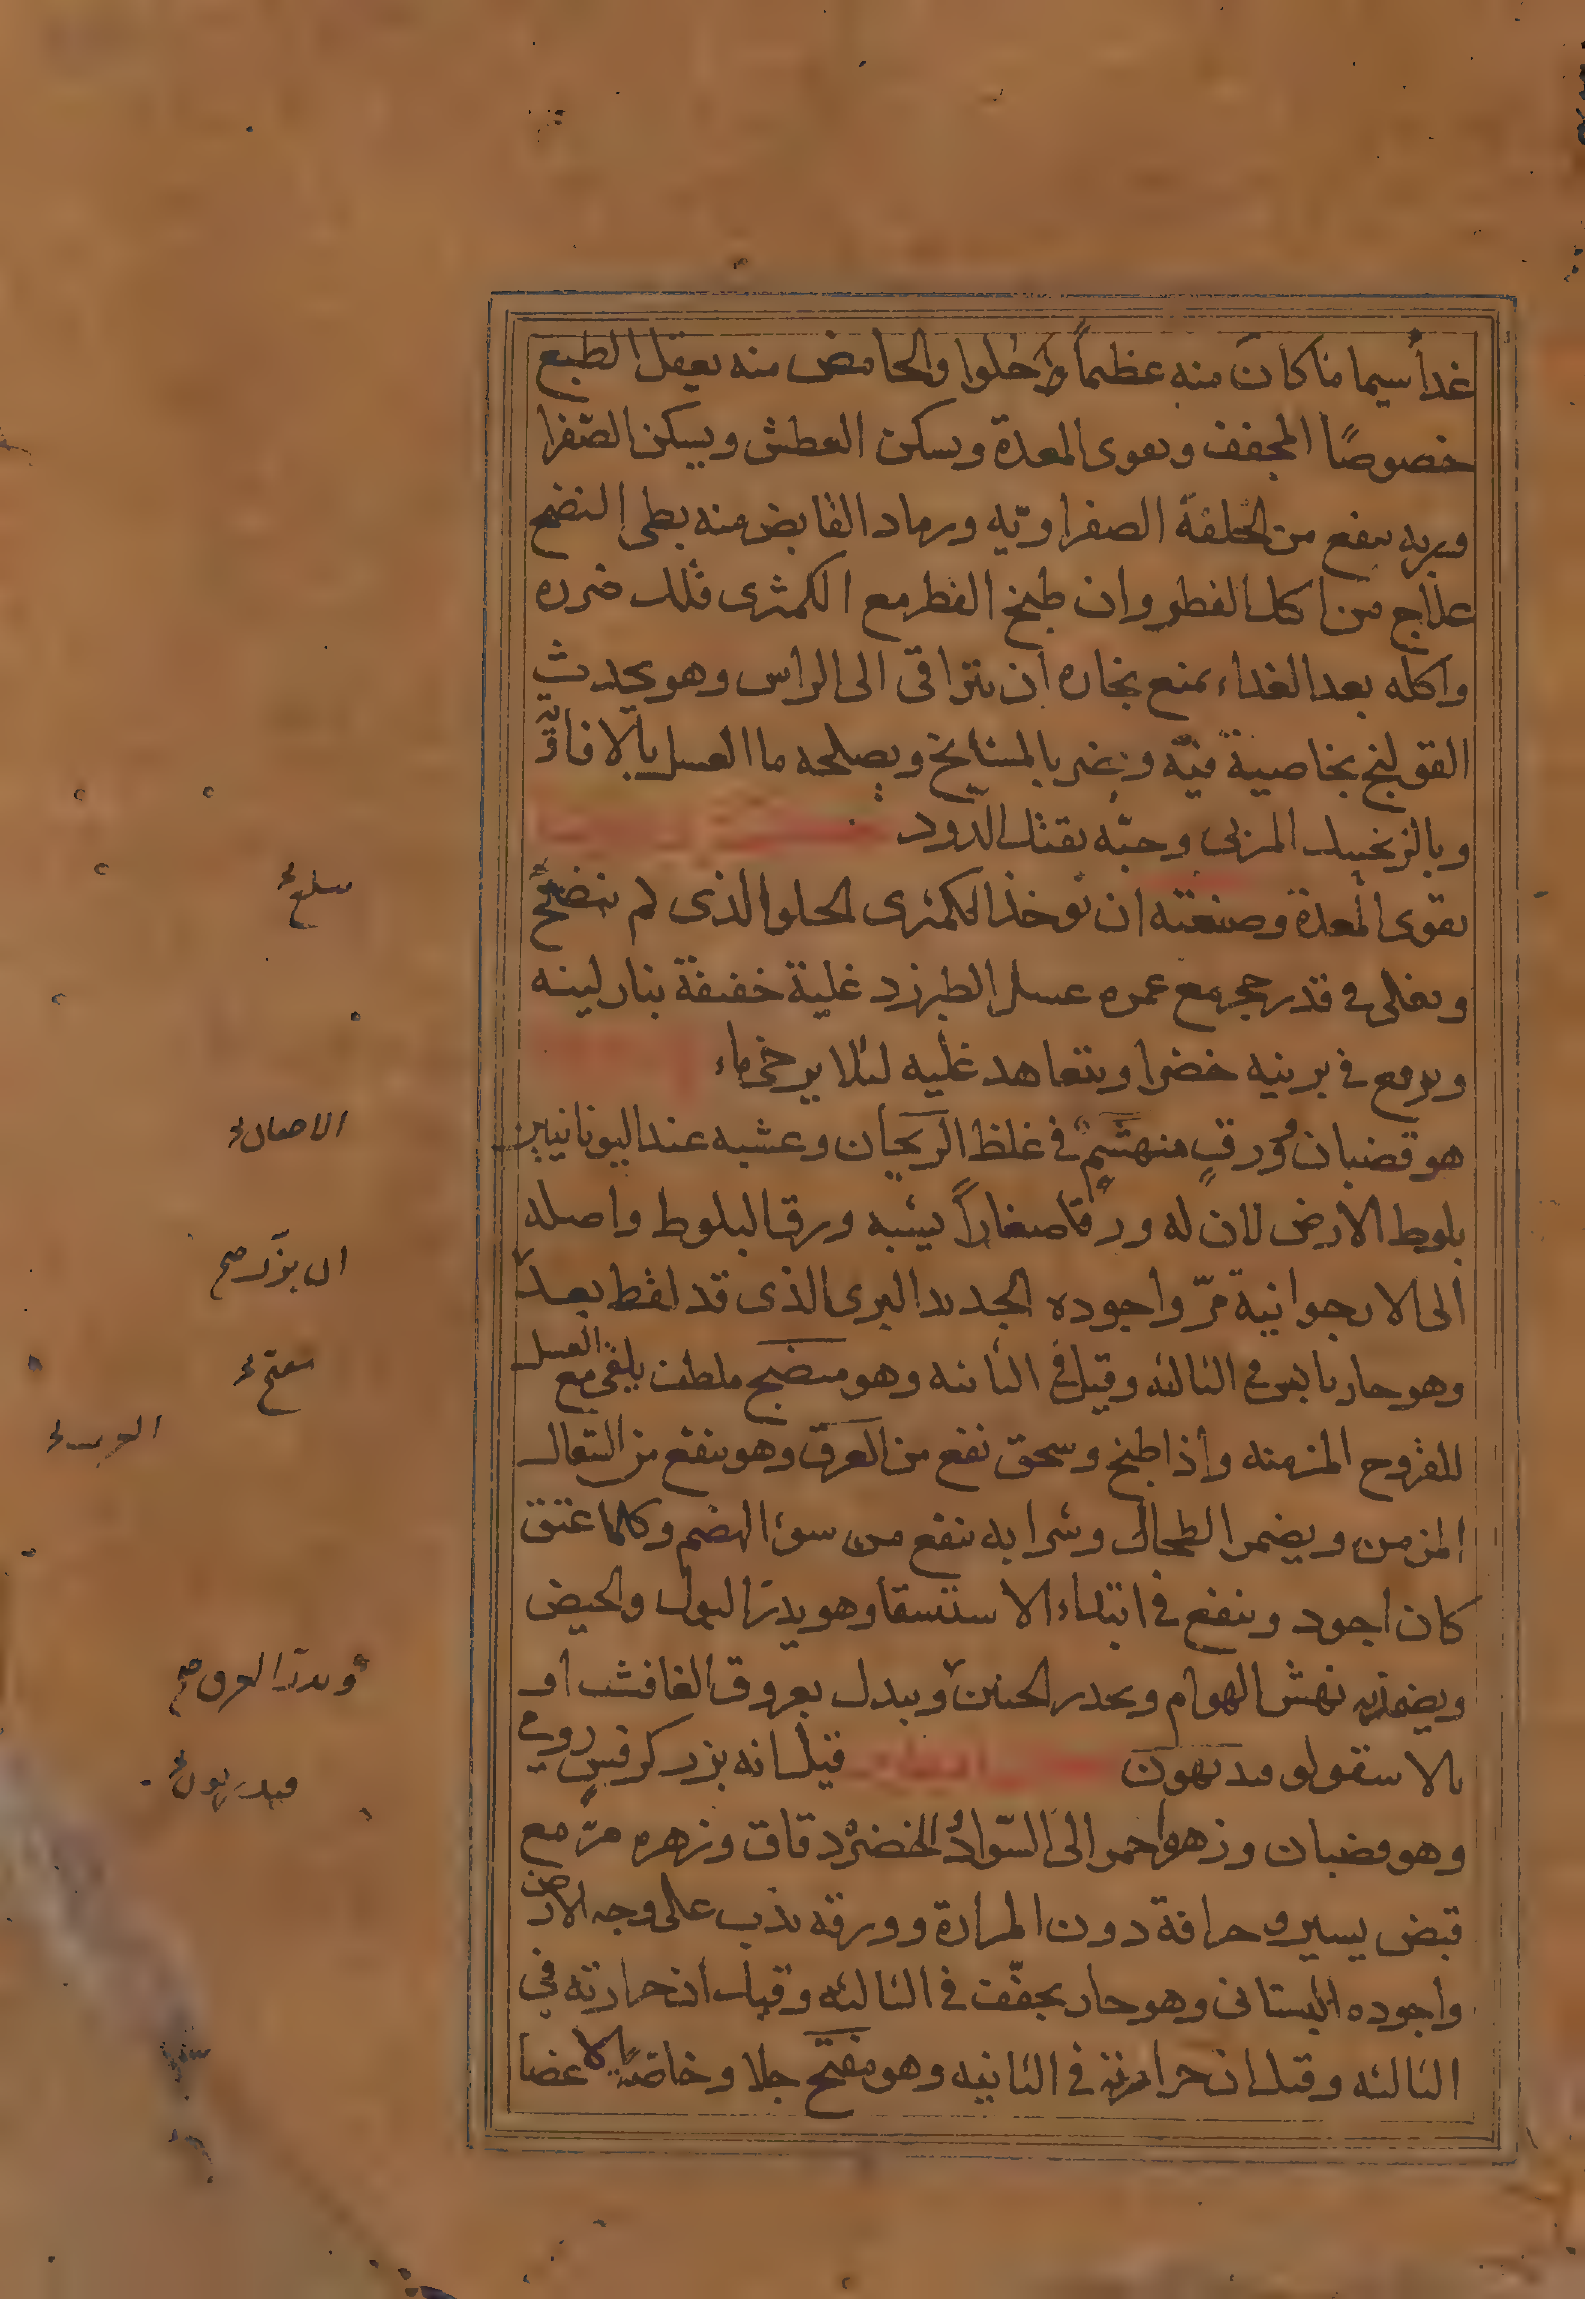 غدأ سيما ما كان منه عظيماً وحلوا والحامض منه يعقل الطبع
خصوصًا المجفف ويقوى المعدة ويسكن العطش ويسكن الصّفرا
وربه ينفع من الخلفة الصفراويّه ورماد القابض منه بطى النضج
علاج من اكل الفطر وان طبخ الفطر مع الكمثرى قلل ضرره
واكله بعد الغداء يمنع بخاره ان يتراقى الى الراس وهو يحدث
القولنج بخاصية فيّه ويضر بالمشايخ ويصلحه ما العسل بالافاويّه
وبالزنجبيل المربى وحبّه يقتل الدّود
يقوى المعدة وصنعته ان يوخذ الكمثرى الحلو الذى لم ينضج
ويغلى فى قدر حجر مع غمره عسل الطبرزد غلية خفيفة بنار لينه
ويرفع فى برنيه خضرا ويتعاهد غليه لئلا يرخى ماء
هو قضبان وورق منهشم فى غلظ الريحان وعشبه عند اليونانيين
بلوط الارض لان له ورقا صغاراً يشبه ورق البلوط واصله
الى الارجوانية مرّ واجوده الجديد البرى الذى قد لقط بعد
وهو حار يابس فى الثالثه وقيل فى الثانيه وهو منضج ملطف يلقى مع العسل
للقروح المزمنه واذا طبخ وسحق نفع من العرق وهو ينفع من السّعال
المزمن ويضمر الطحال وشرابه ينفع من سوء الهضم وكلما عتق
كان اجود وينفع فى ابتداء الاستسقا وهو يدرّ البول والحيض
ويضمد به نهش الهوام ويحدر الجنين ويبدل بعروق الغافث او
بالاسقولو قندريون قيل انه بزر كرفس رومى
وهو قضبان وزهر احمر الى السّواد والخضرة دقاق وزهره مرّ مع
قبض يسير وحرافة دون المرارة وورقه يدب على وجه الارض
واجوده البستانى وهو حار يجفّف فى الثالثه وقيل ان حرارته فى
الثالثه وقيل ان حرارته فى الثانيه وهو مفتح جلا وخاصّة للاعضا
الاصفان
ان بزر صح
مفتح
ويدرّ العرق صح